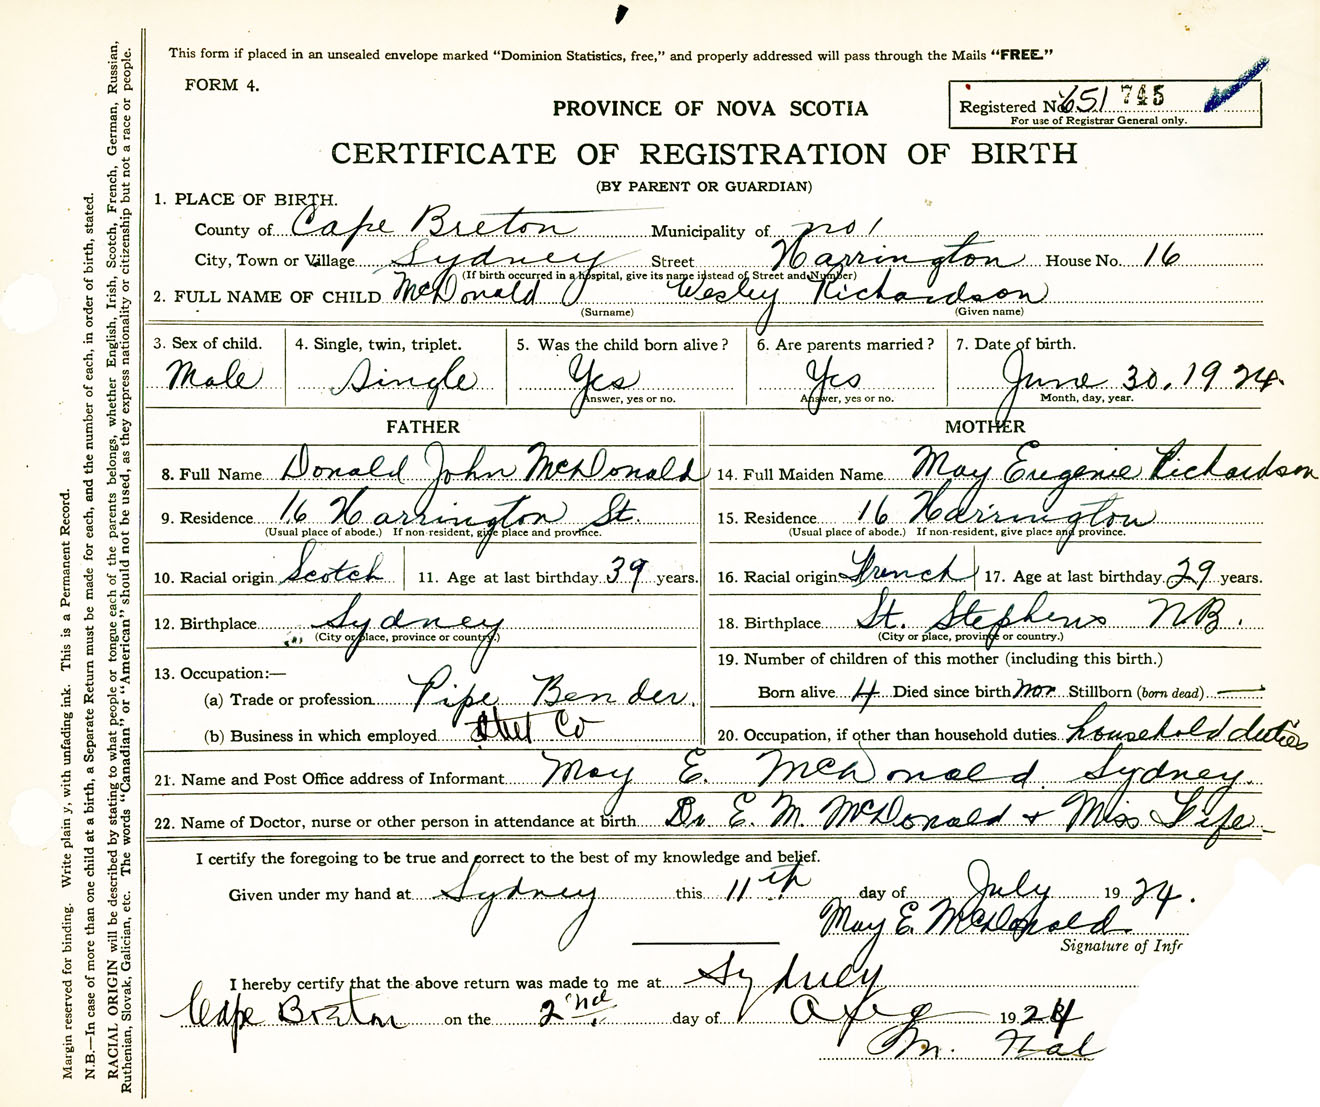 This form if placed in an unsealed envelope marked "Dominion Statistics, free," and properly addressed will pass through the Mails "FREE."
FORM 4.
Registered No. 651 745
For use of Registrar General only.
PROVINCE OF NOVA SCOTIA
CERTIFICATE OF REGISTRATION OF BIRTH
(BY PARENT OR GUARDIAN)
1. PLACE OF BIRTH.
County of Cape Breton Municipality of no 1
City, Town or Village Sydney Street Harrington House No. 16
(If birth occurred in a hospital, give its name instead of Street and Number)
2. FULL NAME OF CHILD McDonald Wesley Richardson
(Surname) (Given name)
3. Sex of child. 4. Single, twin, triplet. 5. Was the child born alive? 6. Are parents married? 7. Date of birth.
Male Single Yes Yes June 30, 1924.
Answer, yes or no. Answer, yes or no. Month, day, year.
FATHER MOTHER
8. Full Name Donald John McDonald 14. Full Maiden Name May Eugenie Richardson
9. Residence 16 Harrington St. 15. Residence 16 Harrington
(Usual place of abode.) If non-resident, give place and province. (Usual place of abode.) If non-resident, give place and province.
10. Racial origin Scotch 11. Age at last birthday 39 years. 16. Racial origin French 17. Age at last birthday 29 years.
12. Birthplace Sydney 18. Birthplace St. Stephens N.B.
(City or place, province or country.) (City or place, province or country.)
13. Occupation:— 19. Number of children of this mother (including this birth.)
(a) Trade or profession Pipe Bender. Born alive 4 Died since birth Stillborn (born dead) —
(b) Business in which employed Steel Co 20. Occupation, if other than household duties household duties
21. Name and Post Office address of Informant May E. McDonald Sydney.
22. Name of Doctor, nurse or other person in attendance at birth Dr. E. M. McDonald + Miss Fife
I certify the foregoing to be true and correct to the best of my knowledge and belief.
Given under my hand at Sydney this 11th day of July 1924.
May E. McDonald
Signature of Inf
I hereby certify that the above return was made to me at Sydney
Cape Breton on the 2nd day of 1924
Margin reserved for binding. Write plain y, with unfading ink. This is a Permanent Record.
N.B.—In case of more than one child at a birth, a Separate Return must be made for each, and the number of each, in order of birth, stated.
RACIAL ORIGIN will be described by stating to what people or tongue each of the parents belongs, whether English, Irish, Scotch, French, German, Russian,
Ruthenian, Slovak, Galician, etc. The words "Canadian" or "American" should not be used, as they express nationality or citizenship but not a race or people.